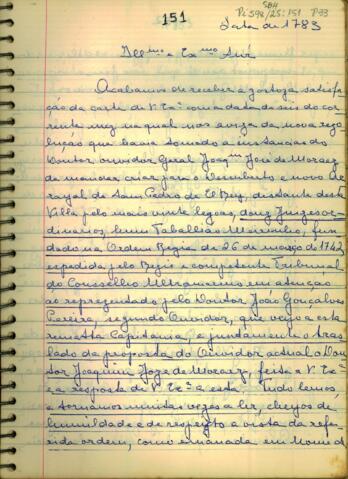 151
SBH
Pi 598/25:151 P.73
Data de 1783
Illmo e Exmo Snr
Acabamos de receber a gostoza satisfa
ção da carta de V. Exª com a data de seis do cor
rente mez na qual nos aviza da nova rezo
lução que havia tomado a instancias do
Doutor ouvidor Geral Joaqm Joze de Moraez
de mandar criar para o Dezuberto e novo ar
rayal de Sam Pedro de El Rey, distante desta
Villa pelo mais vinte legoas, douz Juizes or
dinarios, hum Taballião Meirinho, fun
dado na Ordem Regia de 26 de março de 1742
expedida pelo Regio e competente Tribunal
do Cousselho Ultramarino em atenção
ao reprezentado pelo Doutor João Gonçalves
Pereira, segundo Ouvidor, que veyo a esta
remotta Capitania, e juntamente o tras
lado da proposta do Ouvidor actual o Dou
tor Joaquim Joze de Moraez, feita a V. Exª
e a resposta de V. Exª a esta. Tudo lemos
e tornamos muitas vezes a ler, cheyos de
humildade e de respeito a vista da refe
rida ordem, como emanada em Nome d